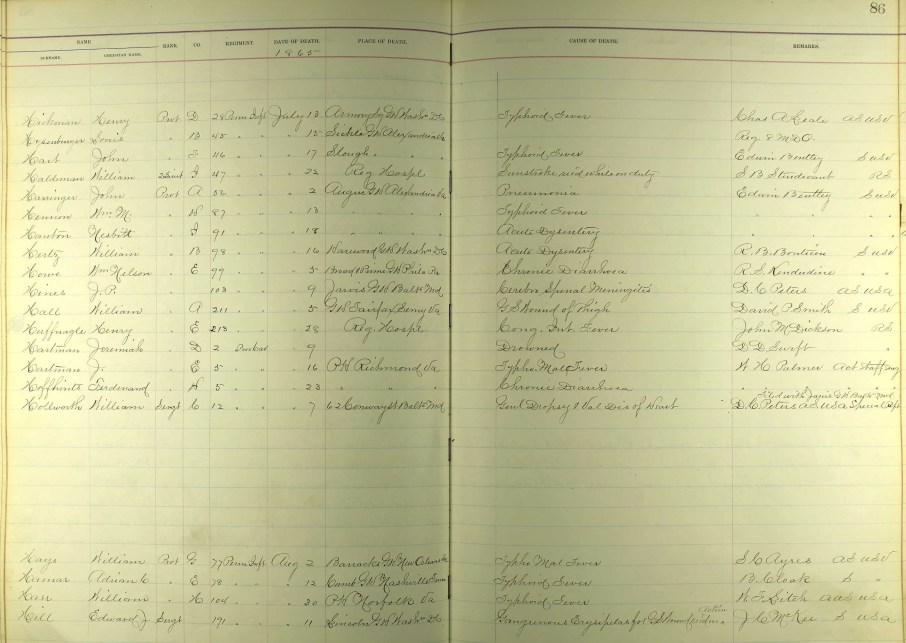 86
NAME RANK. CO. REGIMENT. DATE OF DEATH. PLACE OF DEATH. CAUSE OF DEATH. REMARKS.
SURNAME. CHRISTIAN NAME. 1865
Hickman Henry Pvt D 28 Penn Inft July 13 Armory Sq GH Wash'n DC Typhoid Fever Chas A Leale AS USV
Louis " B 45 " " " 15 Sickle GH Alexandria Va Reg 8 M.D.O.
Hart John " 116 " " " 17 Slough " " Typhoid Fever Edwin Bentley S USV
Haldman William 2 Lieut I 47 " " " 22 Reg Hospl Sunstroke recd while on duty S B Sturdevant RS
Haninger John Pvt A 52 " " " 2 Augur GH Alexandria Va Pneumonia Edwin Bentley S USV
Wm M. " H 87 " " " 13 " " " Typhoid Fever " " "
Hanton Nesbitt " I 91 " " " 18 " " " Acute Dysentery " " "
Hertz William " B 98 " " " 16 Harewood GH Wash'n DC Acute Dysentery R. B. Bontecou S USV
Howe Wm Nelson " E 99 " " " 5 Broad & Prime GH Phila Pa Chronic Diarrhoea R S Kenderdine " "
Hines J. P. " 103 " " " 9 Jarvis GH Balt Md Cerebro Spinal Meningitis D. C Peters AS USA
Hall William " A 211 " " " 5 GH Fairfax Seminy Va GS Wound of Thigh David P Smith S USV
Huffnagle Henry " E 213 " " " 28 Reg. Hospl Cong. Int. Fever John M Dickson RS
Hartman Jeremiah " D 2 " " 9 Drowned D D Swift "
Hartman J. " E 5 " " " 16 PH Richmond Va Typho Mal Fever H C Palmer Act Staff Surg
Ferdinand " H 5 " " " 23 " " " Chronic Diarrhoea " " "
Hollworth William Sergt C 12 " " " 7 62 Conway St Balt Md Genl Dropsy & Val Dis of Heart D. C Peters AS USA Special Rept
Filed with Jarvis GH Balto Md
Hays William Pvt G 77 Penn Inft Aug 2 Barracks GH New Orleans La Typho Mal Fever S C Ayres AS USV
Adrian C " E 78 " " " 12 Cumb GH Nashville Tenn Typhoid Fever B. Cloak S "
Hass William " H 104 " " " 20 PH Norfolk Va Typhoid Fever AAS USA
Hill Edward J Sergt 191 " " " 11 Lincoln GH Wash'n DC Gangrenous Erysipelas for GS Wound J. C McKee S USA